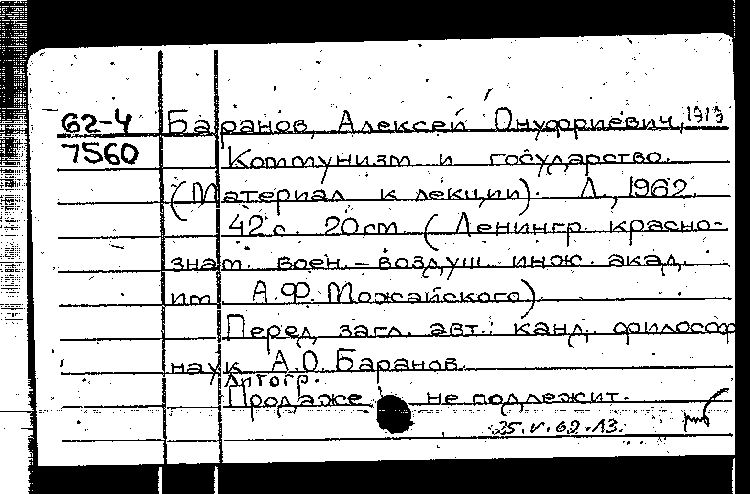 62-4 Баранов, Алексей Онуфриевич, 1913
7560 Коммунизм и государство.
(Материал к лекции). Л., 1962.
42 с. 20 см (Ленингр. красно-
знам. воен.-воздуш. инж. акад.
им. А.Ф. Можайского)
Перед загл. авт.: канд. философ
наук А.О. Баранов.
Автогр.
Продаже не подлежит.
25.V.62.